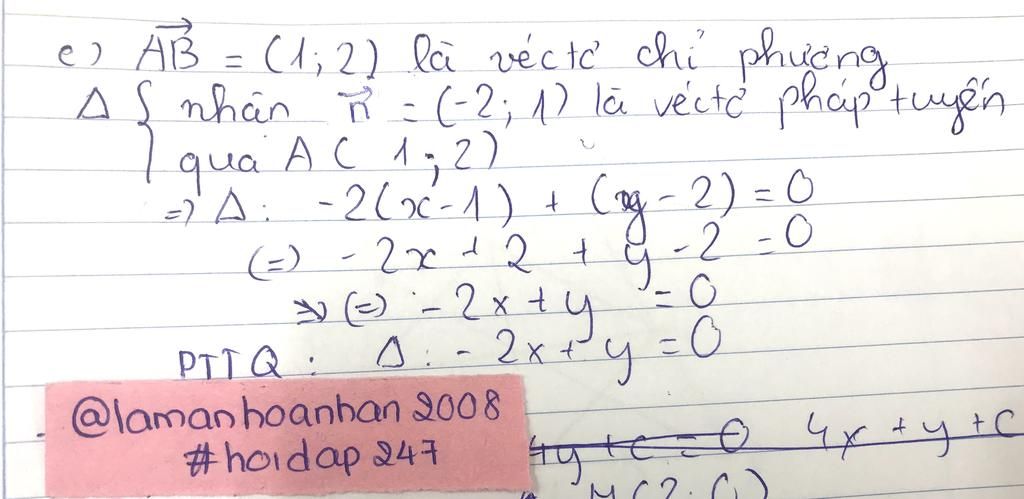 c) AB = (1; 2) là véctơ chỉ phương
Δ { nhân n = (-2; 1) là véctơ pháp tuyến
qua A ( 1; 2)
=> Δ: -2(x-1) + (y-2) = 0
(=) -2x + 2 + y - 2 = 0
(=) -2x + y = 0
PTTQ: Δ: -2x + y = 0
@lamanhoanhan 2008
#hoidap 247
+y + c = 0 4x + y + c